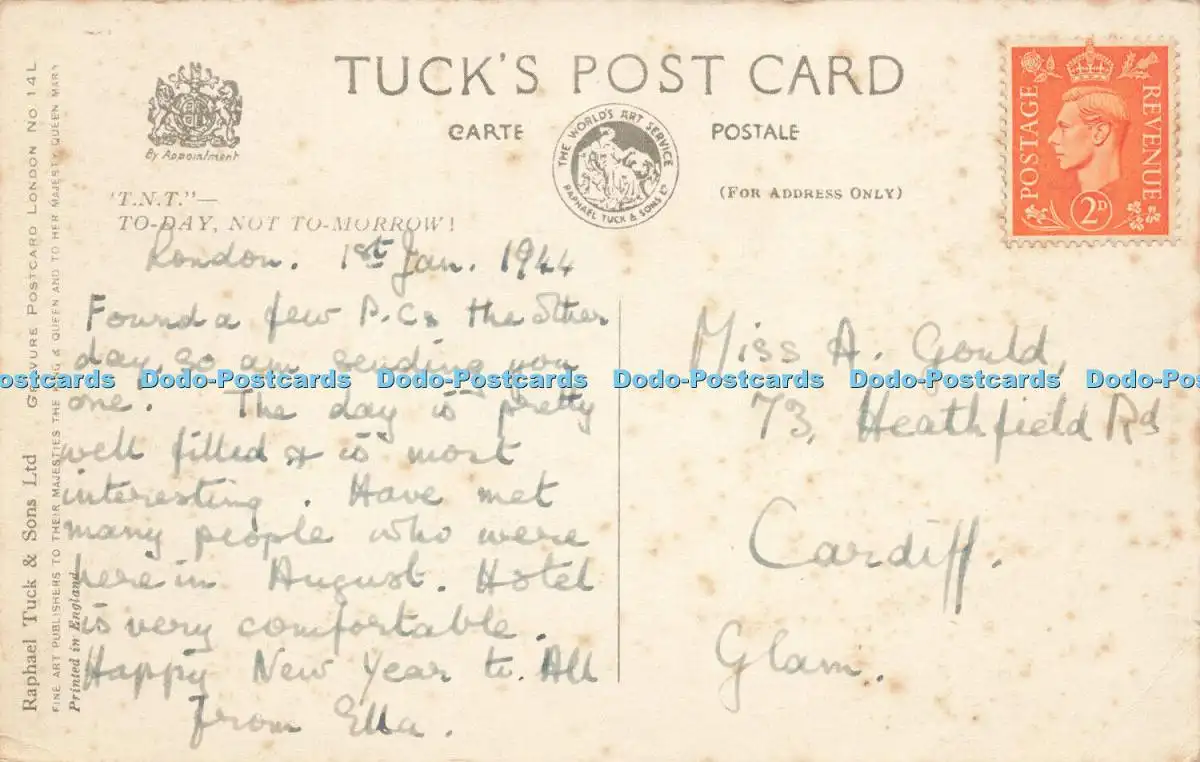 TUCK'S POST CARD
CARTE POSTALE
(FOR ADDRESS ONLY)
By Appointment
THE WORLD'S ART SERVICE
RAPHAEL TUCK & SONS LD
POSTAGE REVENUE
2D
'T.N.T."—
TO-DAY, NOT TO-MORROW!
London. 1st Jan. 1944
Found a few P.Cs the other
day, so am sending you
one. The day is pretty
well filled & is most
interesting. Have met
many people who were
here in August. Hotel
is very comfortable.
Happy New Year to All
from Ella.
Miss A. Gould,
73, Heathfield Rd
Cardiff.
Glam.
Raphael Tuck & Sons Ltd GRAVURE POSTCARD LONDON No 14L
FINE ART PUBLISHERS TO THEIR MAJESTIES THE KING & QUEEN AND TO HER MAJESTY QUEEN MARY
Printed in England
Dodo-Postcards Dodo-Postcards Dodo-Postcards Dodo-Postcards Dodo-Postcards Dodo-Postcards